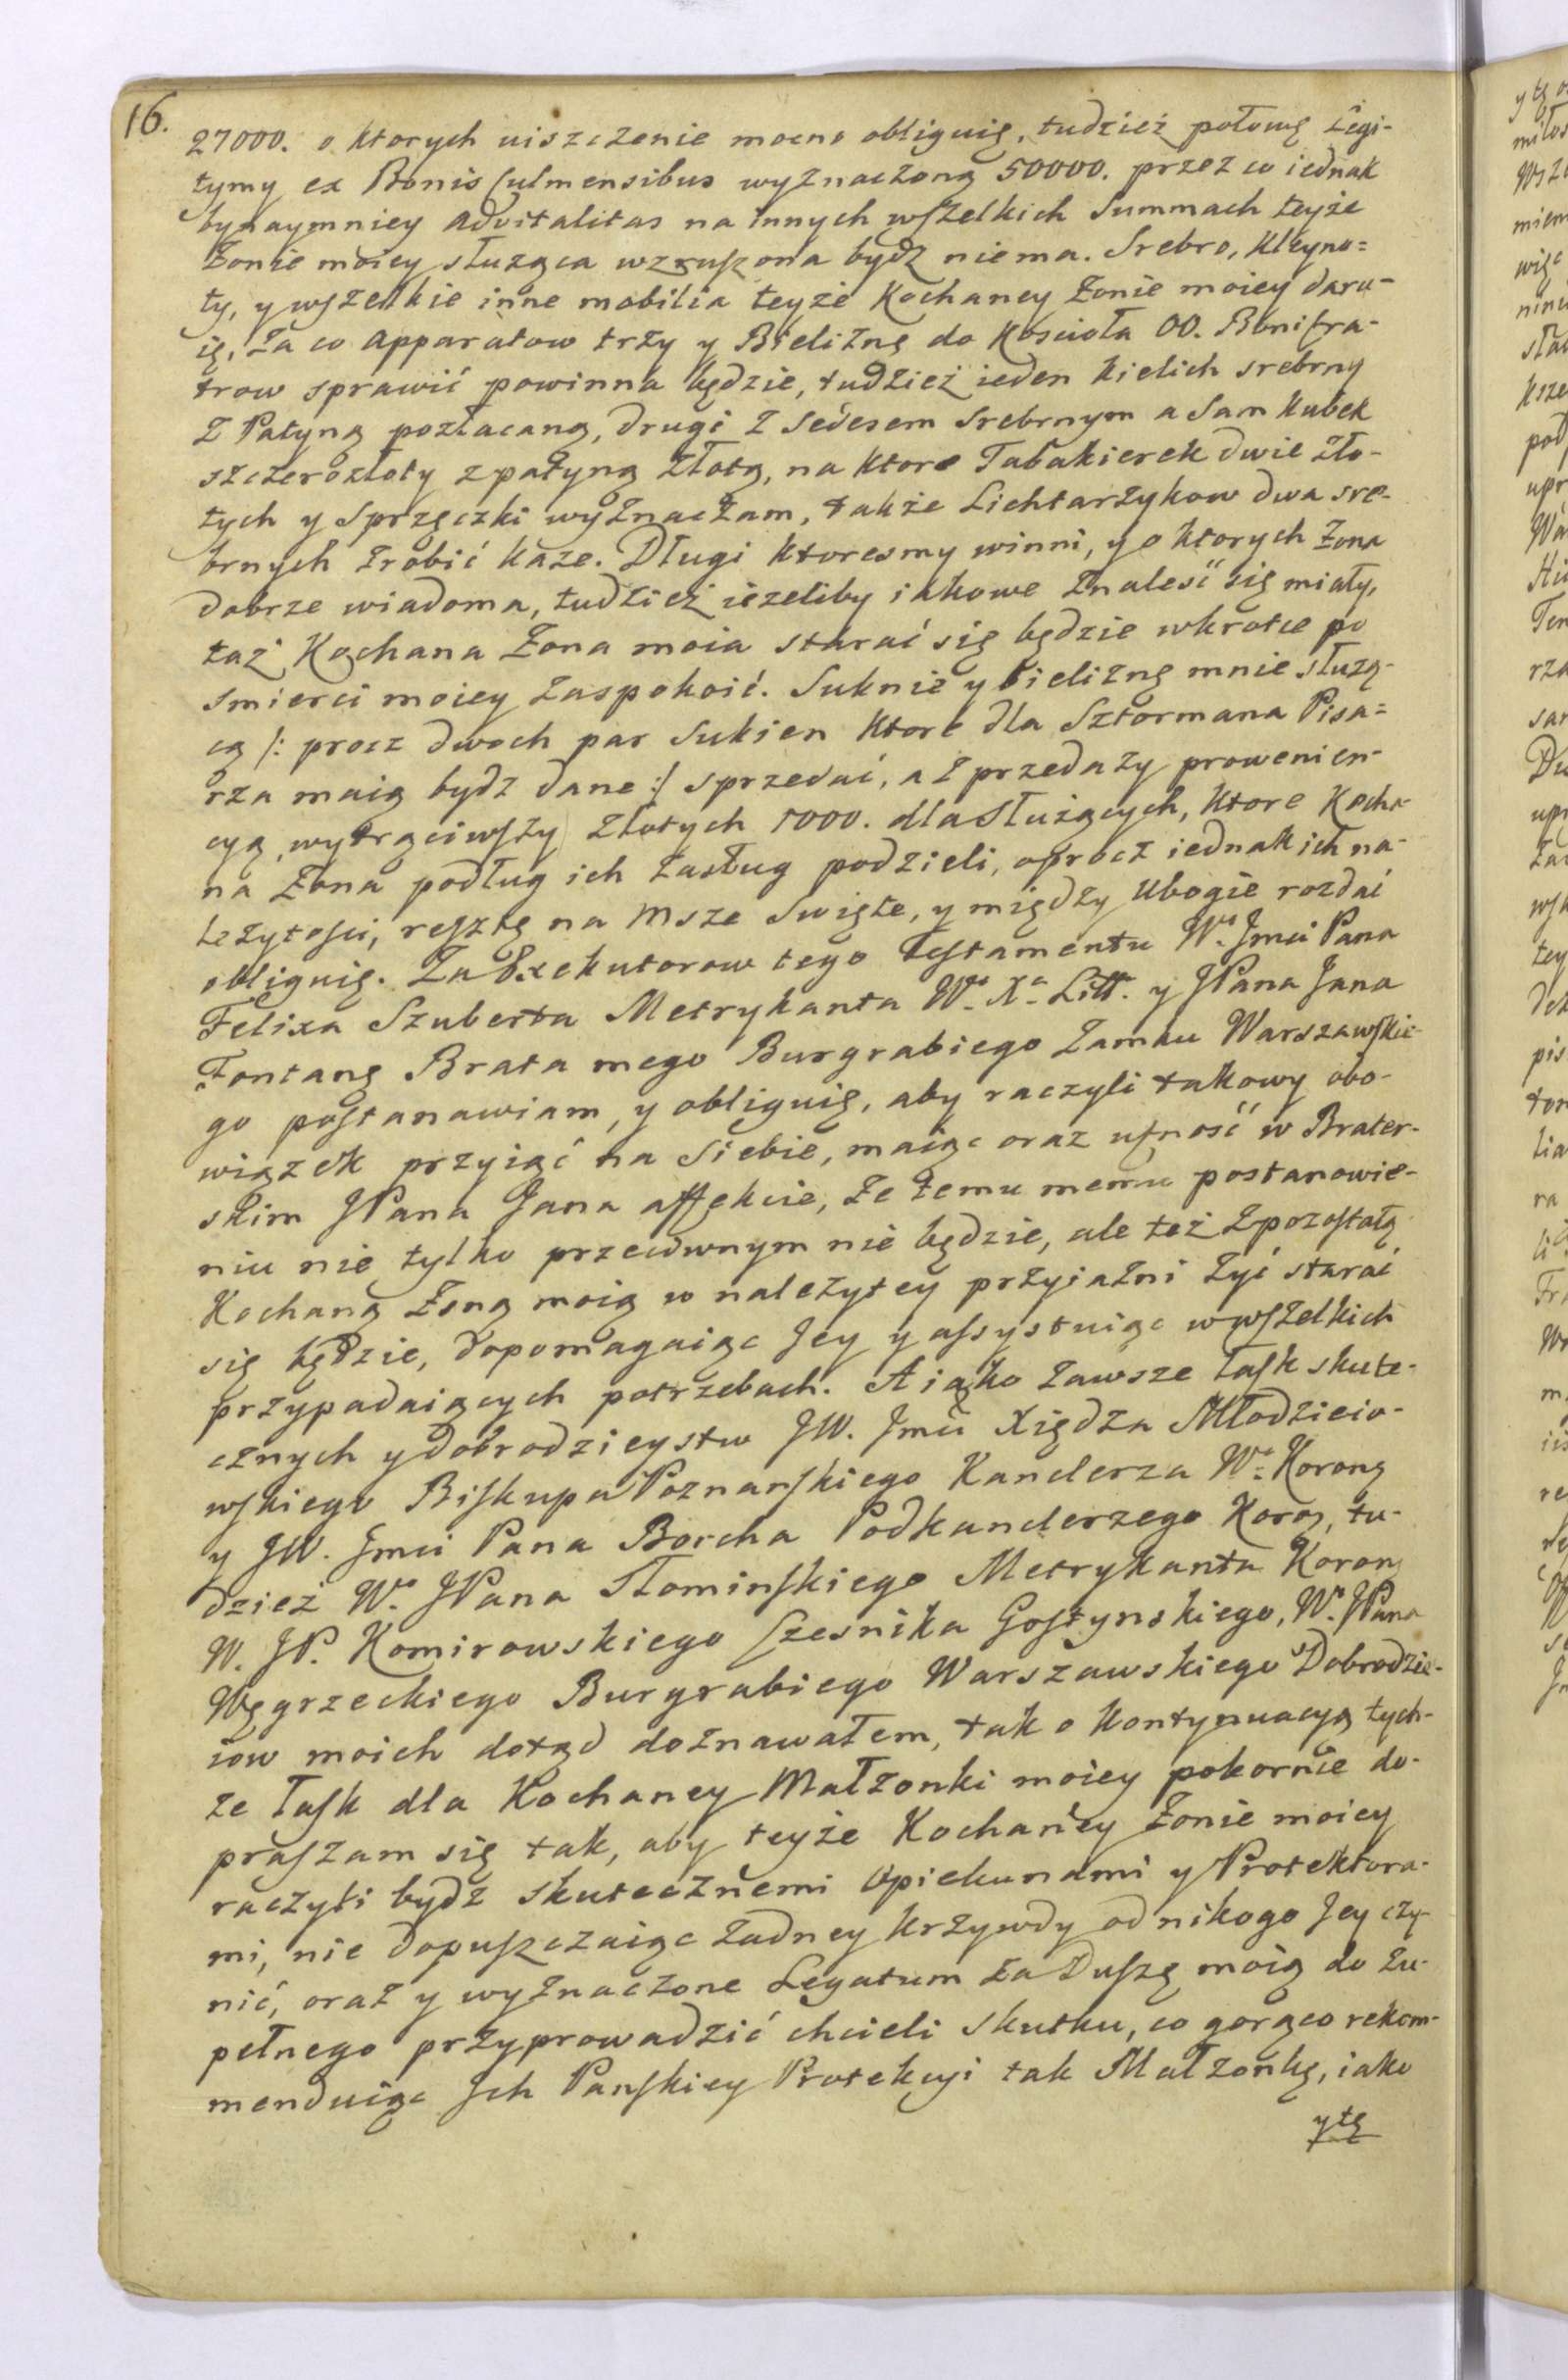 16.
27000. o ktorych uiszczenie mocno obliguię, tudzież połowę Legi-
tymy ex Bonis Culmensibus wyznaczoną 50000. przez co iednak
bynaymniey advitalitas na innych wszelkich Summach teyże
Żonie moiey służąca wzruszona bydź niema. Srebro, Kleyno=
ty, y wszelkie inne mobilia teyże Kochaney Żonie moiey daru-
ię, za co Apparatow trzy y Bieliznę do Kościoła OO. Bonifra-
trow sprawić powinna będzie, tudzież ieden Kielich srebrny
z Patyną pozłacaną, drugi z Sedesem Srebrnym a Sam Kubek
szczerozłoty z patyną złotą, na ktore Tabakierek dwie zło-
tych y Sprzęczki wyznaczam, także Lichtarzykow dwa sre-
brnych zrobić każe. Długi ktoresmy winni, y o ktorych Żona
dobrze wiadoma, tudzież ieżeliby iakowe znaleść się miały,
taż Kochana Żona moia starać się będzie wkrotce po
smierci moiey zaspokoić. Suknie y bieliznę mnie służą-
cą /: procz dwoch par Sukien ktore dla Sztormana Pisa=
rza maią bydź dane :/ sprzedać, a z przedaży prowenien-
cyą, wytrąciwszy złotych 1000. dla Służących, ktore Kocha-
na Żona podług ich zasług podzieli, oprocz iednak ich na-
leżytości, resztę na Msze Swięte, y między Ubogie rozdać
obliguię. Za Exekutorow tego Testamentu Wo. Jmci Pana
Felixa Szuberta Metrykanta Wo. Xa. Litt. y JPana Jana
Fontanę Brata mego Burgrabiego Zamku Warszawskie-
go postanawiam, y obliguię, aby raczyli takowy obo-
wiązek przyiąć na Siebie, maiąc oraz ufność w Brater-
skim JPana Jana affekcie, że temu memu postanowie-
niu nie tylko przeciwnym nie będzie, ale też z pozostałą
Kochaną Żoną moią w należytey przyiaźni żyć starać
się będzie, dopomagaiąc Jey y assystuiąc w wszelkich
przypadaiących potrzebach. A iako zawsze łask skute-
cznych y dobrodzieystw JW. Jmci Xiędza Młodzieio-
wskiego Biskupa Poznanskiego Kanclerza Wo. Korong
y JW. Jmci Pana Borcha Podkanclerzego Koron, tu-
dzież Wo. JPana Słominskiego Metrykanta Koron
W. JP. Komirowskiego Czesnika Gostynskiego, Wo. JPana
Węgrzeckiego Burgrabiego Warszawskiego Dobrodzie-
iow moich dotąd doznawałem, tak o kontynuacyą tych-
że łask dla Kochaney Małżonki moiey pokornie do-
praszam się tak, aby teyże Kochaney Żonie moiey
raczyli bydź skutecznemi Opiekunami y Protektora-
mi, nie dopuszczaiąc żadney krzywdy od nikogo Jey czy-
nić, oraz y wyznaczone Legatum za Duszę moią do zu-
pełnego przyprowadzić chcieli skutku, co gorąco rekom-
menduiąc Ich Panskiey Protekcyi tak Małżonkę, iako
y tę